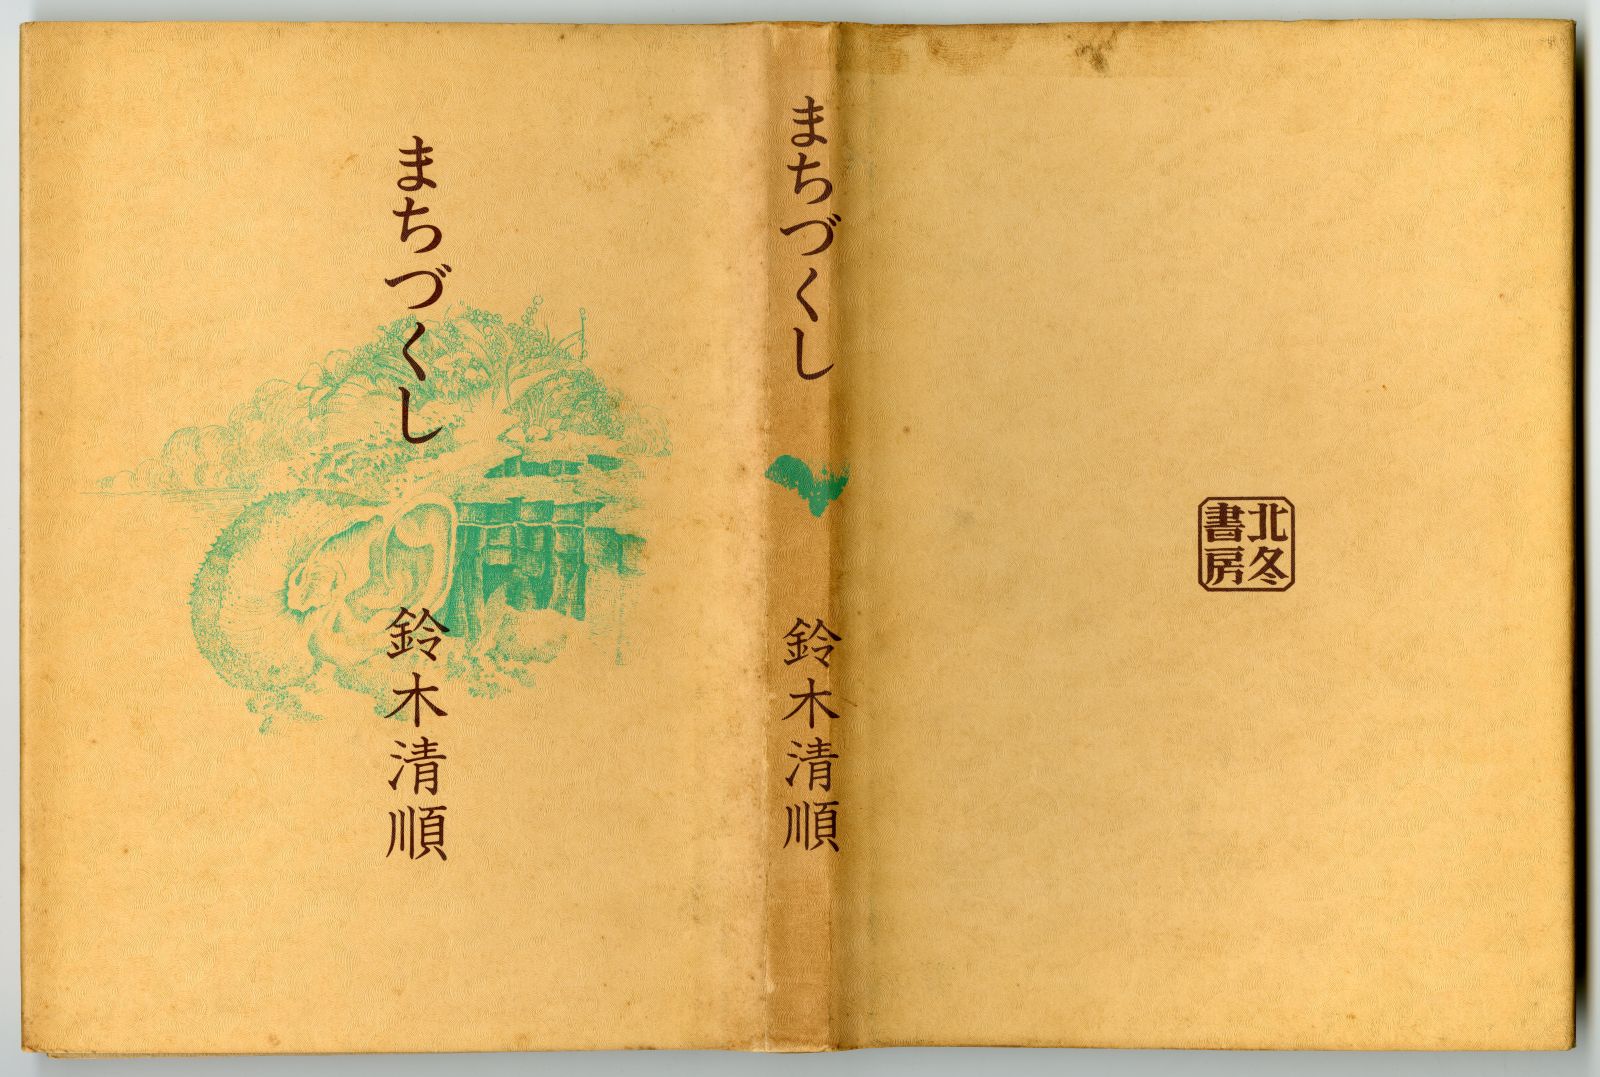 まちづくし
鈴木清順
まちづくし
鈴木清順
北冬
書房